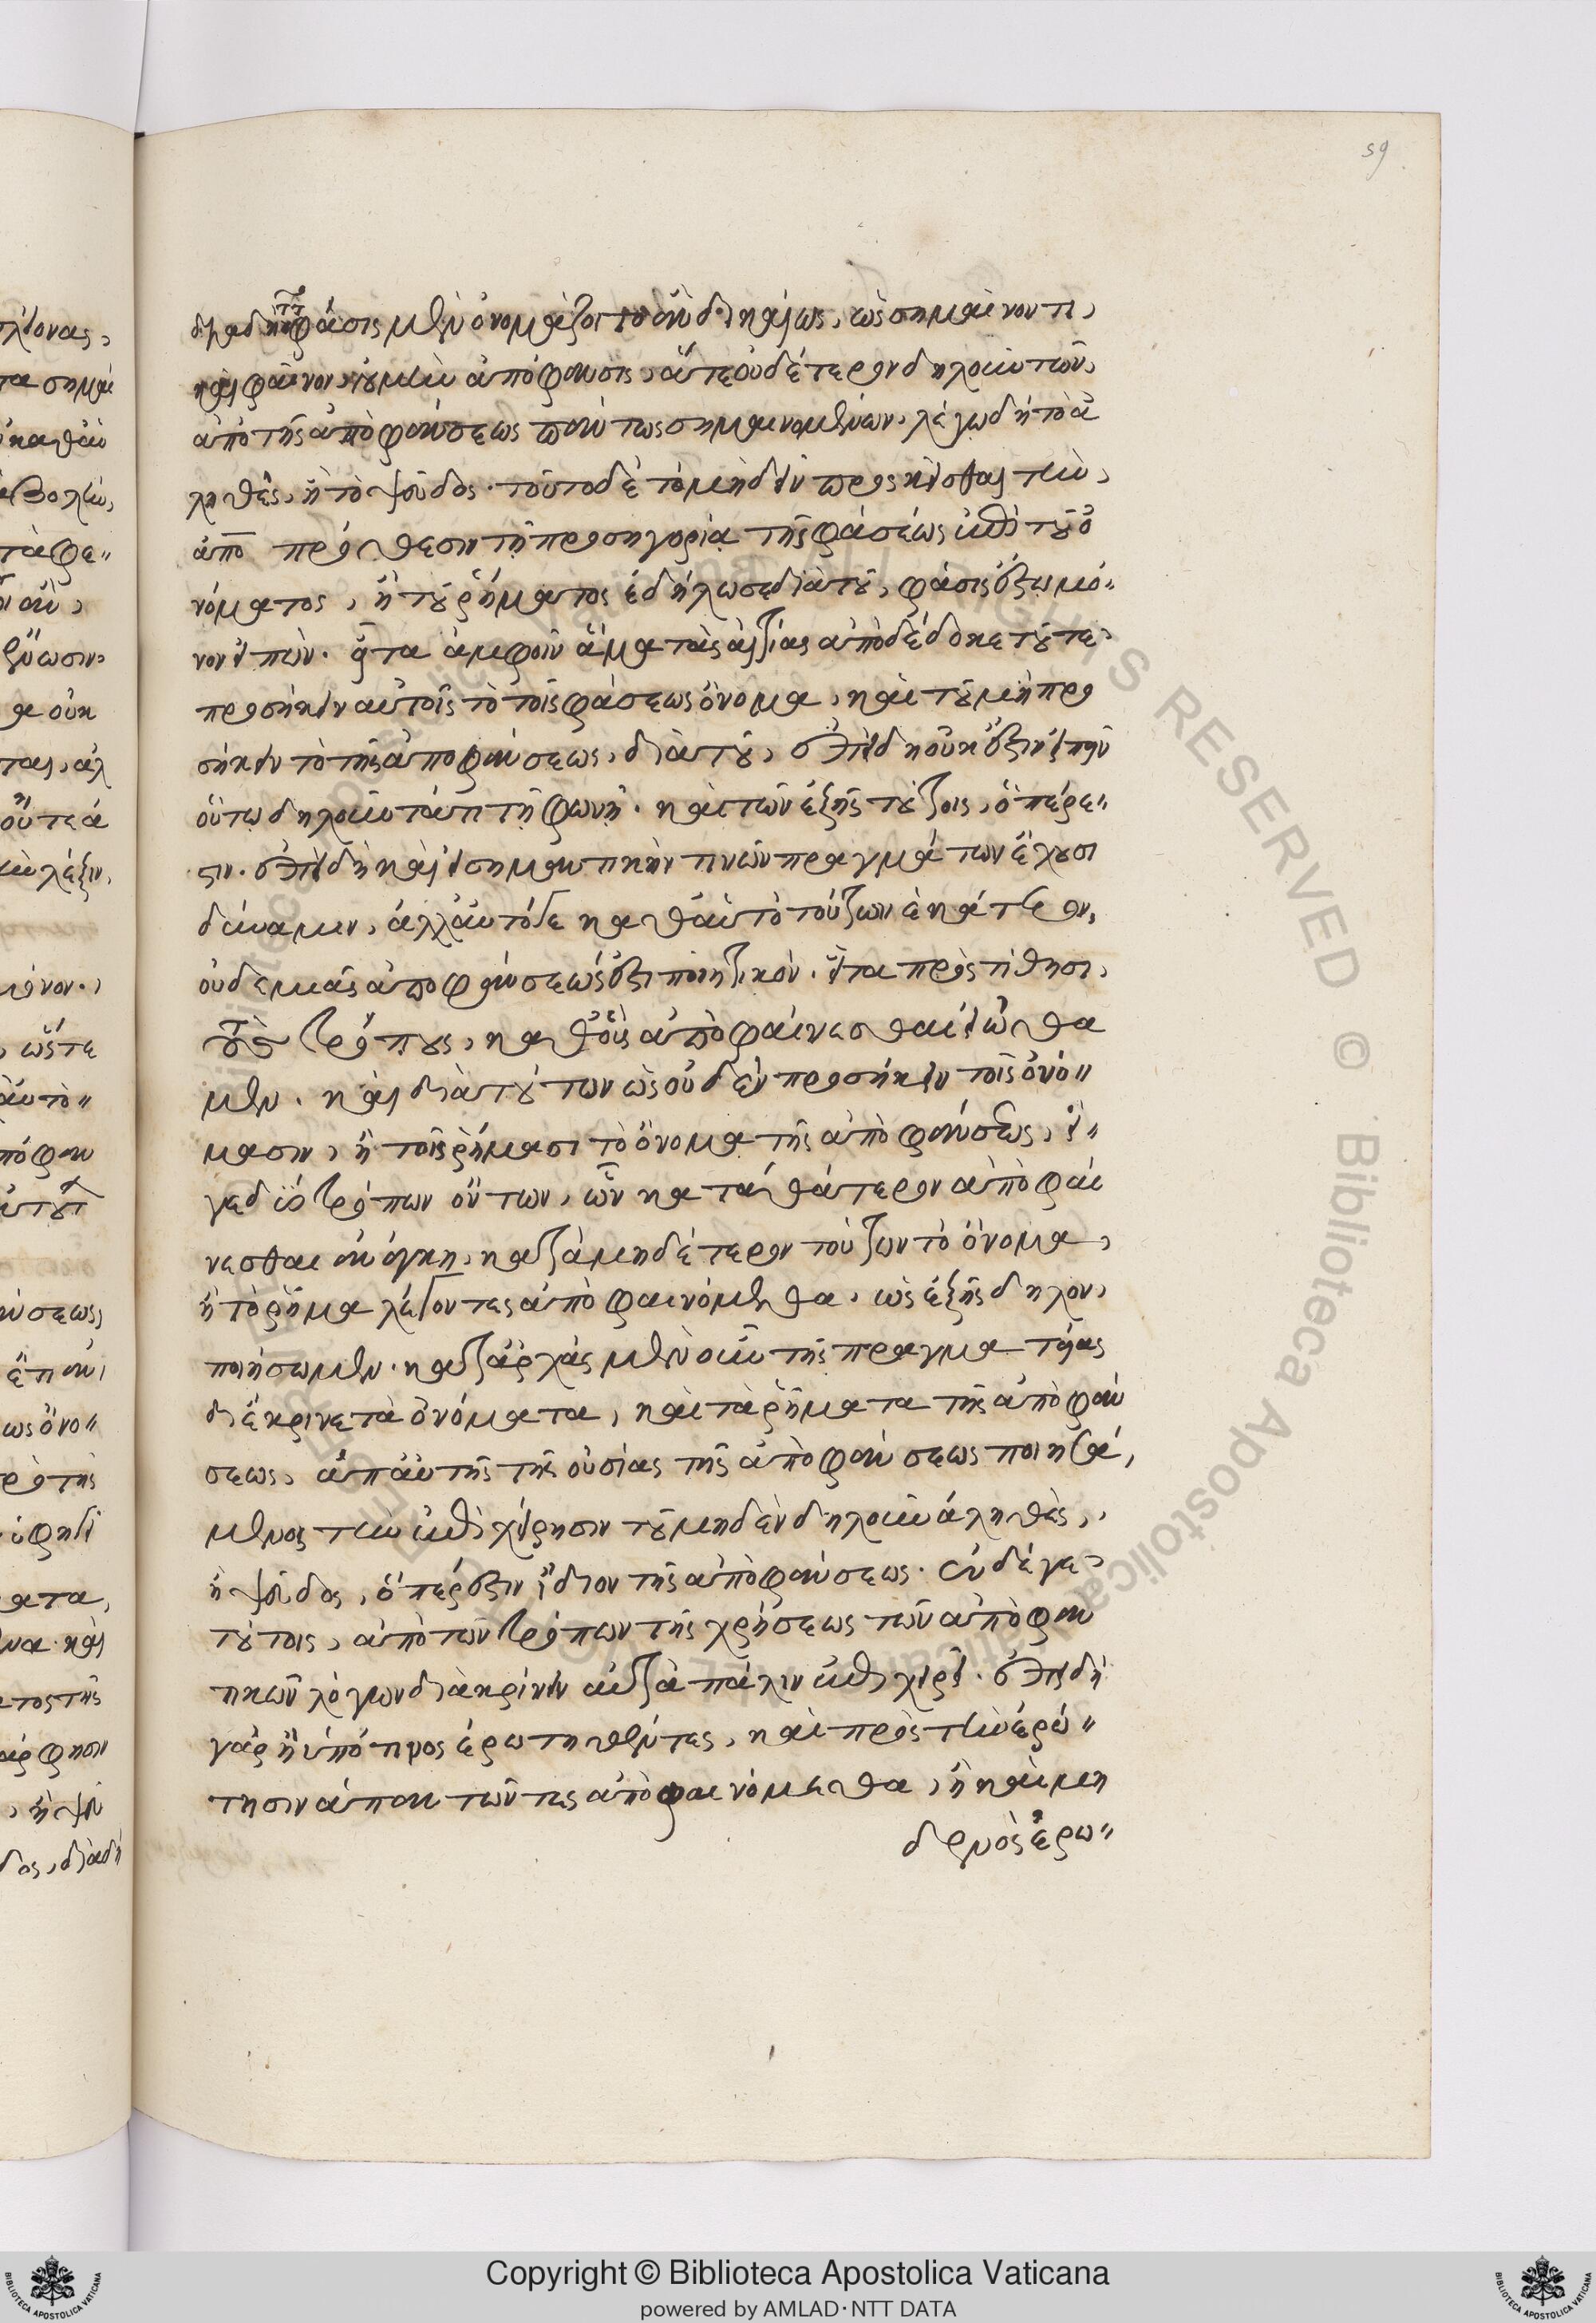 59
φάσις μὲν ὀνομάζοιτο ἂν δικαίως, ὡς σημαίνον τι,
καὶ φαῖνον, οὐ μὴν ἀπόφανσις, ἅτε οὐδέτερον δηλοῦν τῶν
ἀπὸ τῆς ἀποφάνσεως πάντως σημαινομένων, λέγω δὴ τὸ ἀ
ληθὲς, ἢ τὸ ψεῦδος. τοῦτο δὲ τὸ μηδὲν προσκεῖσθαι τὴν,
ἀπὸ πρόθεσιν τῇ προσηγορίᾳ τῆς φάσεως ἐπὶ τοῦ ὀ
νόματος, ἢ τοῦ ῥήματος ἐδήλωσε διὰ τοῦ, φάσις ἔστω μό"
νον εἰπών. εἶτα ἀμφοῖν ἅμα τὰς αἰτίας ἀποδέδωκε τοῦ τε
προσήκειν αὐτοῖς τὸ τῆς φάσεως ὄνομα, καὶ τοῦ μὴ προ
σήκειν τὸ τῆς ἀποφάνσεως, διὰ τοῦ, ἐπειδὴ οὐκ ἔστιν εἰπεῖν
οὕτω δηλοῦντά τι τῇ φωνῇ. καὶ τῶν ἑξῆς τούτοις, ὅπερ ἐ"
στιν. ἐπειδὴ καὶ εἰ σημαντικήν τινων πραγμάτων ἔχουσι
δύναμιν, ἀλλ' αὐτό γε καθ' αὑτὸ τούτων ἑκάτερον,
οὐδεμιᾶς ἀποφάνσεώς ἐστι ποιητικόν. εἶτα προστίθησι,
τοὺς τρόπους, καθ' οὓς ἀποφαίνεσθαι εἰώθα
μεν. καὶ διὰ τούτων ὡς οὐδὲν προσήκειν τοῖς ὀνό"
μασιν, ἢ τοῖς ῥήμασι τὸ ὄνομα τῆς ἀποφάνσεως, εἴ"
γε δύο τρόπων ὄντων, ὧν κατὰ θάτερον ἀποφαί
νεσθαι ἀνάγκη, κατὰ μηδέτερον τούτων τὸ ὄνομα,
ἢ τὸ ῥῆμα λέγοντες ἀποφαινόμεθα, ὡς ἑξῆς δῆλον,
ποιήσωμεν. κατ' ἀρχὰς μὲν οὖν τῆς πραγματείας
διέκρινε τὰ ὀνόματα, καὶ τὰ ῥήματα τῆς ἀποφάν
σεως, ἀπ' αὐτῆς τῆς οὐσίας τῆς ἀποφάνσεως ποιησά,
μενος τὴν ἐπιχείρησιν τοῦ μηδὲν δηλοῦν ἀληθὲς,
ἢ ψεῦδος, ὅπερ ἔστιν ἴδιον τῆς ἀποφάνσεως. ἐν δέ γε
τούτοις, ἀπὸ τῶν τρόπων τῆς χρήσεως τῶν ἀποφαν
τικῶν λόγων διακρίνειν αὐτὰ πάλιν ἐπιχειρεῖ. ἐπειδὴ
γὰρ ἢ ὑπό τινος ἐρωτηθέντες, καὶ πρὸς τὴν ἐρώ"
τησιν ἀπαντῶντες ἀποφαινόμεθα, ἢ καὶ μη
δενὸς ἐρω"